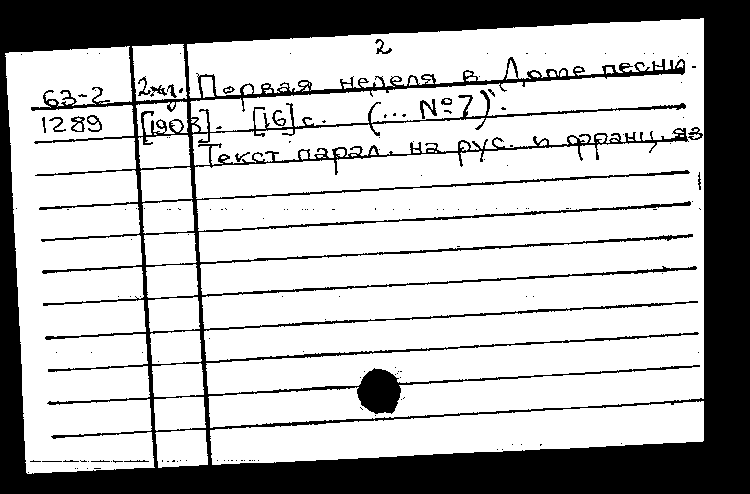 2
63-2 2 экз. Первая неделя в Доме песни.
1289 [1908]. [16] с. (... № 7)".
Текст парал. на рус. и франц. яз